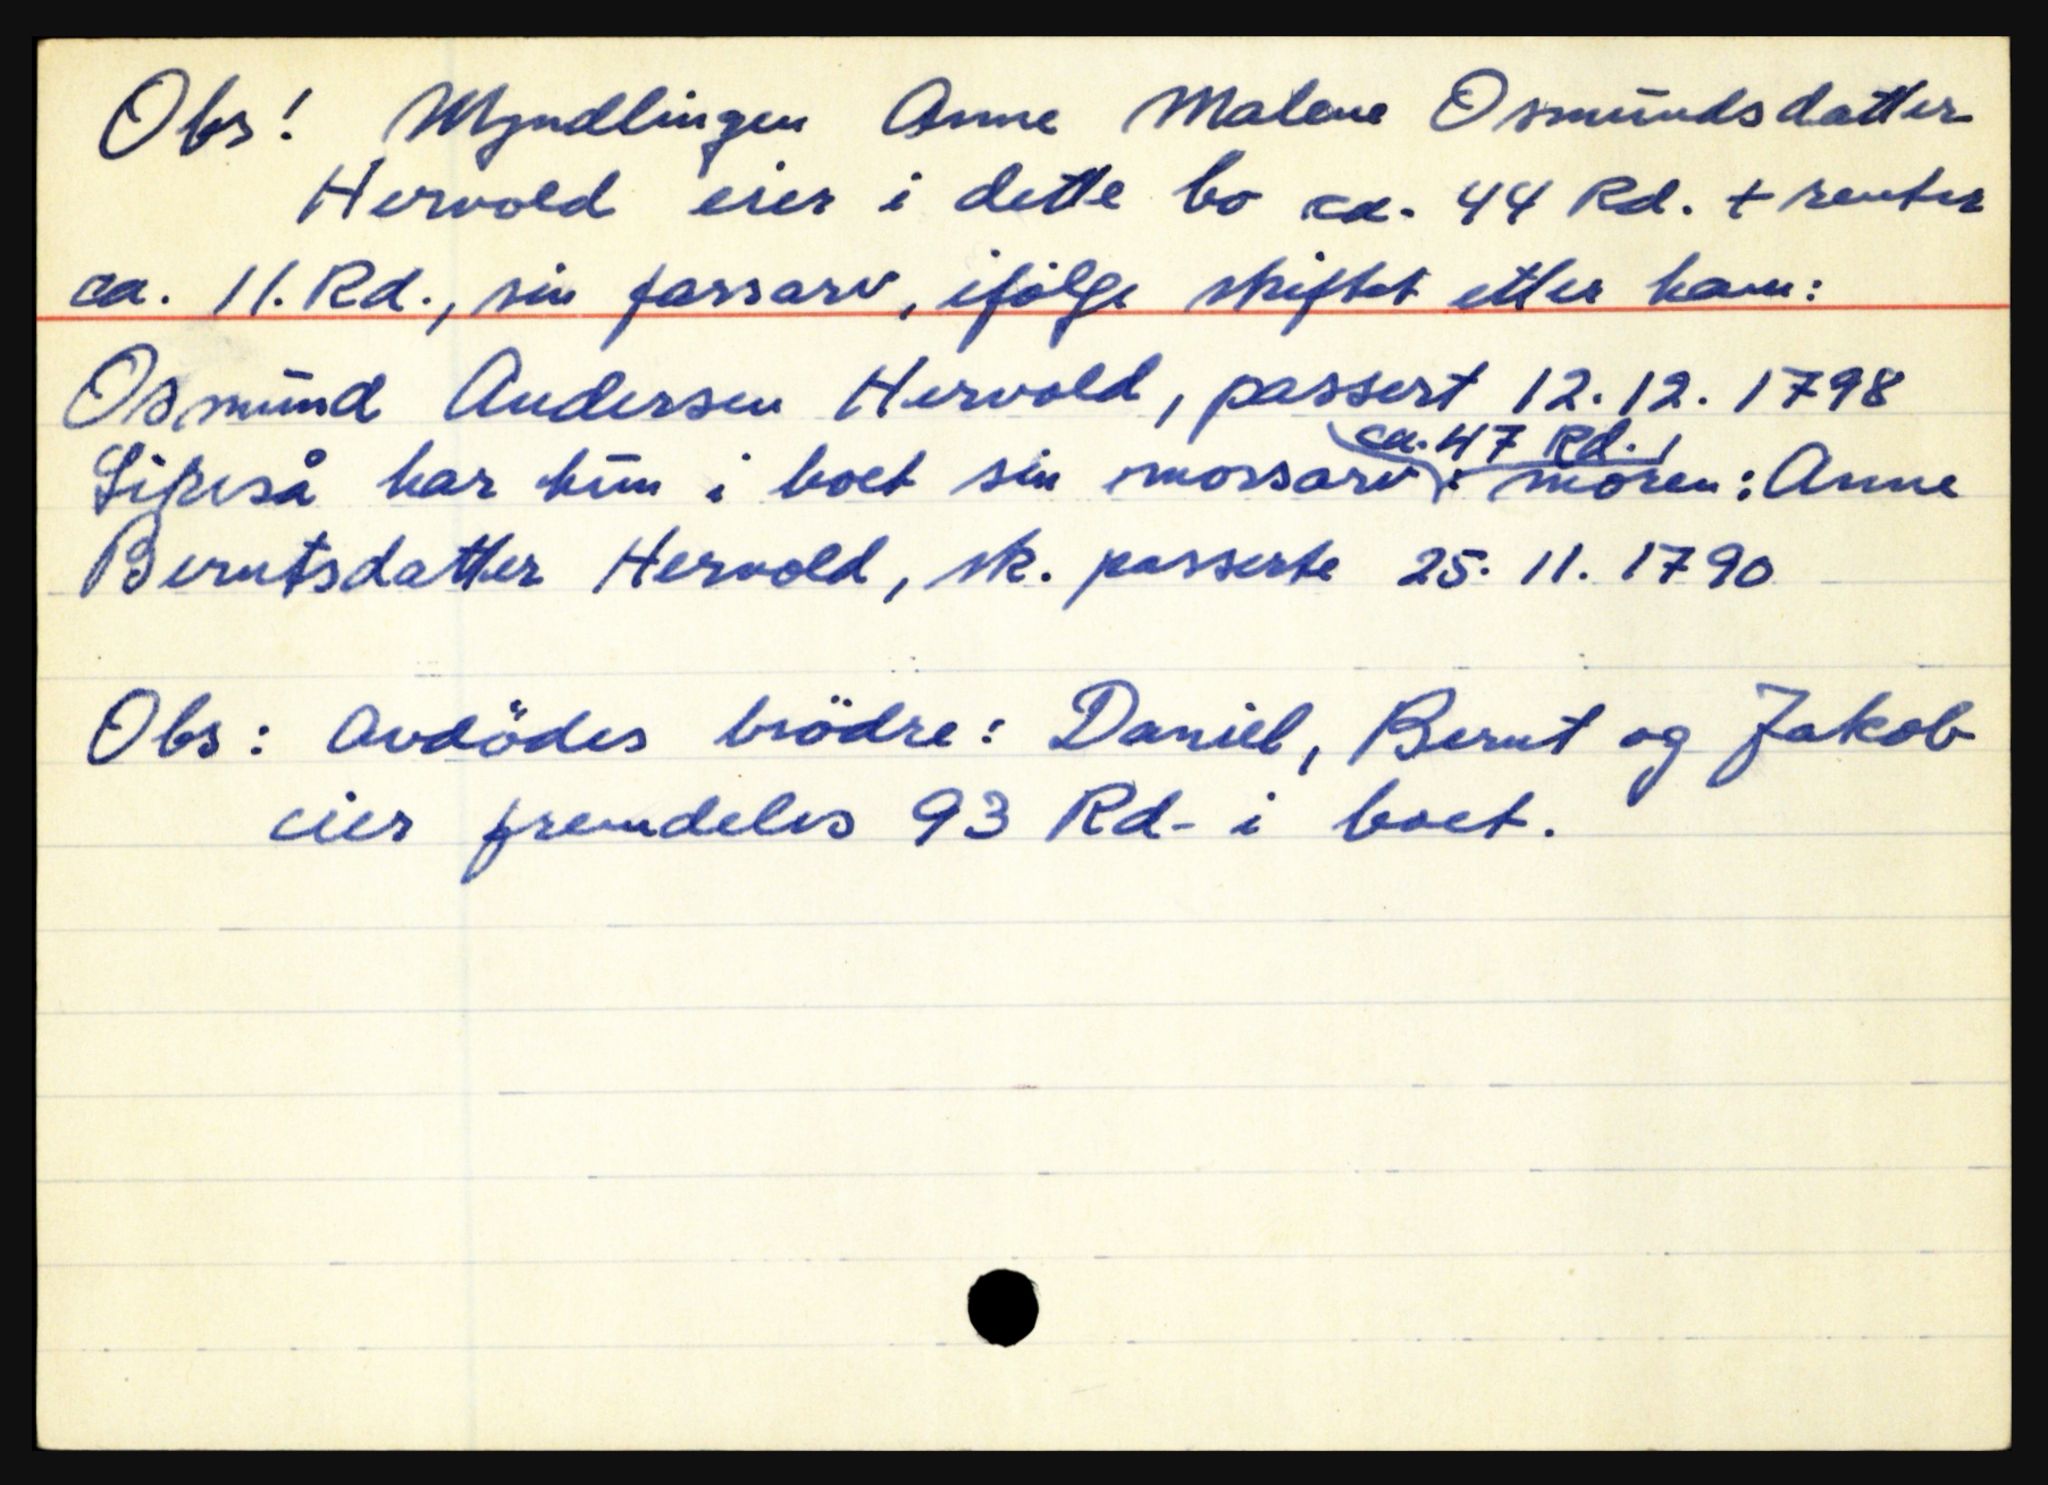 Obs! Myndlingen Anne Malene Osmundsdatter
Hervold eier i dette bo ca. 44 Rd. + renter
ca. 11. Rd., sin farsarv, ifölge skiftet etter ham:
Osmund Andersen Hervold, passert 12.12.1798
ca. 47 Rd.,
Likeså har hun i boet sin morsarv: moren: Anne
Berntsdatter Hervold, sk. passerte 25.11.1790
Obs: Avdödes brödre: Daniel, Bernt og Jakob
eier fremdeles 93 Rd- i boet.